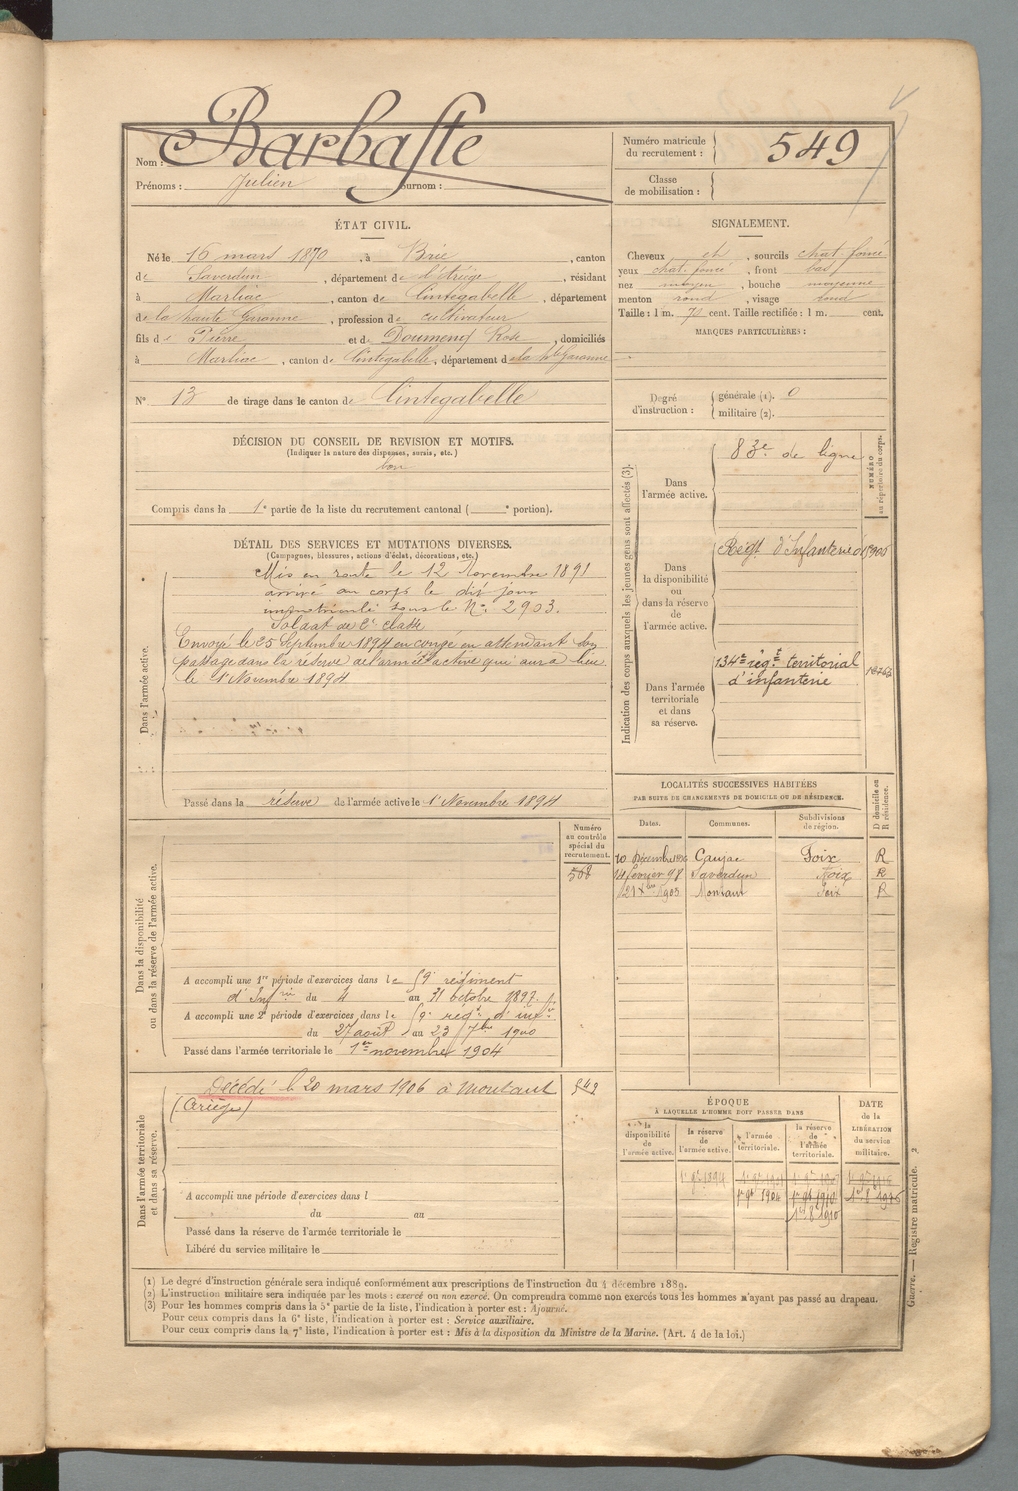 Nom : Barbaste
Prénoms : Julien Surnom :
Numéro matricule du recrutement : 549
Classe de mobilisation :
ÉTAT CIVIL.
Né le 16 mars 1870, à Brie, canton
de Saverdun, département de l'Ariège, résidant
à Marliac, canton de Cintegabelle, département
de la haute Garonne, profession de cultivateur
fils de Pierre et de Doumeng Rose, domiciliés
à Marliac, canton de Cintegabelle, département de la hte Garonne
N° 13 de tirage dans le canton de Cintegabelle
SIGNALEMENT.
Cheveux ch, sourcils chat. foncé
yeux chat. foncé, front bas
nez moyen, bouche moyenne
menton rond, visage rond
Taille : 1 m. cent. Taille rectifiée : 1 m. cent.
MARQUES PARTICULIÈRES :
Degré d'instruction :
générale (1). 0
militaire (2).
DÉCISION DU CONSEIL DE REVISION ET MOTIFS.
(Indiquer la nature des dispenses, sursis, etc.)
bon
Compris dans la 1e partie de la liste du recrutement cantonal ( e portion).
DÉTAIL DES SERVICES ET MUTATIONS DIVERSES.
(Campagnes, blessures, actions d'éclat, décorations, etc.)
Dans l'armée active.
Mis en route le 12 Novembre 1891
arrivé au corps le dit jour
immatriculé sous le N° 2903.
Soldat de 2e classe
Envoyé le 25 Septembre 1894 en congé en attendant son
passage dans la réserve de l'armée active qui aura lieu
le 1er Novembre 1894
Passé dans la réserve de l'armée active le 1er Novembre 1894
Indication des corps auxquels les jeunes gens sont affectés (3).
NUMÉRO au répertoire du corps.
Dans l'armée active.
83e de ligne
Dans la disponibilité ou dans la réserve de l'armée active.
Régt d'Infanterie
Dans l'armée territoriale et dans sa réserve.
134e régt territorial
d'infanterie
LOCALITÉS SUCCESSIVES HABITÉES
PAR SUITE DE CHANGEMENTS DE DOMICILE OU DE RÉSIDENCE.
D domicile ou R résidence.
Dates. Communes. Subdivisions de région.
Gaujac Foix R
14 février 98 Saverdun Foix R
21 Xbre 1903 Montaut Foix R
Dans la disponibilité ou dans la réserve de l'armée active.
Numéro au contrôle spécial du recrutement.
568
A accompli une 1re période d'exercices dans le 59e régiment
d'Infrie du 4 au 31 octobre 1897.
A accompli une 2e période d'exercices dans le 59e régt d'infie
du 27 août au 23 7bre 1900
Passé dans l'armée territoriale le 1er novembre 1904
Dans l'armée territoriale et dans sa réserve.
Décédé le 20 mars 1906 à Montaut
(Ariège)
549
A accompli une période d'exercices dans l
du au
Passé dans la réserve de l'armée territoriale le
Libéré du service militaire le
ÉPOQUE
À LAQUELLE L'HOMME DOIT PASSER DANS
DATE de la LIBÉRATION du service militaire.
la disponibilité de l'armée active.
la réserve de l'armée active.
l'armée territoriale.
la réserve de l'armée territoriale.
1er 9bre 1894
1er 9b 1904 1er 9b 1910
1er 8e 1910
(1) Le degré d'instruction générale sera indiqué conformément aux prescriptions de l'instruction du 4 décembre 1889.
(2) L'instruction militaire sera indiquée par les mots : exercé ou non exercé. On comprendra comme non exercés tous les hommes n'ayant pas passé au drapeau.
(3) Pour les hommes compris dans la 5e partie de la liste, l'indication à porter est : Ajourné.
Pour ceux compris dans la 6e liste, l'indication à porter est : Service auxiliaire.
Pour ceux compris dans la 7e liste, l'indication à porter est : Mis à la disposition du Ministre de la Marine. (Art. 4 de la loi.)
Guerre. — Registre matricule. 2